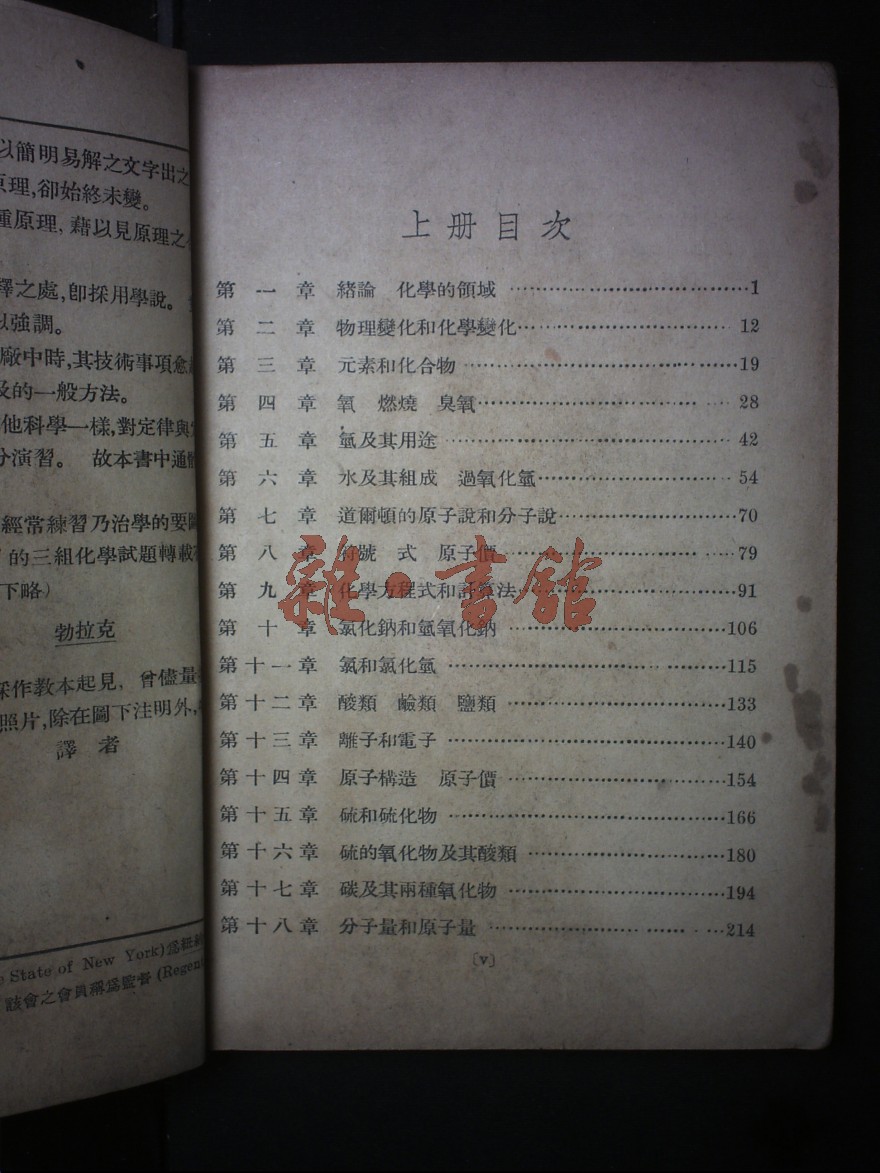 以簡明易解之文字出之
原理,卻始終未變。
重原理, 藉以見原理之
釋之處,卽採用學說。
以強調。
廠中時,其技術事項愈
及的一般方法。
他科學一樣,對定律與
分演習。 故本書中通
經常練習乃治學的要
的三組化學試題轉載
下略)
勃拉克
採作教本起見, 曾儘量
照片,除在圖下注明外,
譯 者
State of New York)爲
該會之會員稱爲監督 (Regen
上册目次
第一章 緒論 化學的領域 ……………………………1
第二章 物理變化和化學變化…………………………12
第三章 元素和化合物…………………………………19
第四章 氧 燃燒 臭氧………………………………28
第五章 氫及其用途……………………………………42
第六章 水及其組成 過氧化氫………………………54
第七章 道爾頓的原子說和分子說……………………70
第八章 符號 式 原子價……………………………79
第九章 化學方程式和計算法…………………………91
第十章 氯化鈉和氫氧化鈉……………………………106
第十一章 氯和氯化氫…………………………………115
第十二章 酸類 鹼類 鹽類…………………………133
第十三章 離子和電子…………………………………140
第十四章 原子構造 原子價…………………………154
第十五章 硫和硫化物…………………………………166
第十六章 硫的氧化物及其酸類………………………180
第十七章 碳及其兩種氧化物…………………………194
第十八章 分子量和原子量……………………………214
〔v〕
雜·書館